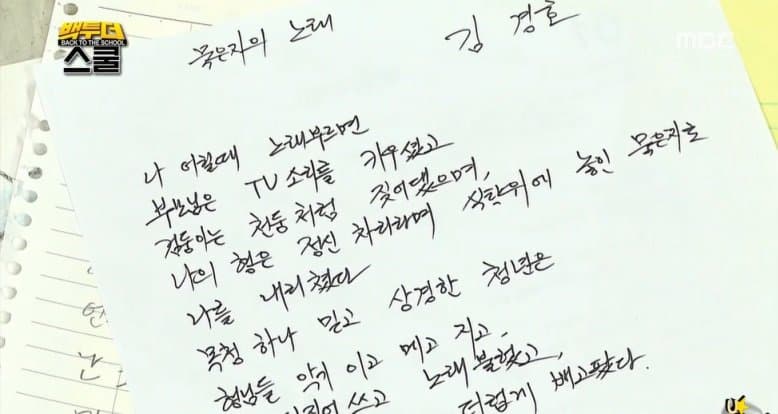 백투더
BACK TO THE SCHOOL
스쿨
MBC
묵은지의 노래
김경호
나 어릴때 노래부르면
부모님은 TV소리를 키우셨고
검둥이는 천둥처럼 짖어댔으며,
나의 형은 정신 차리라며 식탁위에 놓인 묵은지로
나를 내리쳤다
목청 하나 믿고 상경한 청년은
형님들 악기 이고 메고 지고,
쓰고 노래 불렀고,
더럽게 배고팠다.